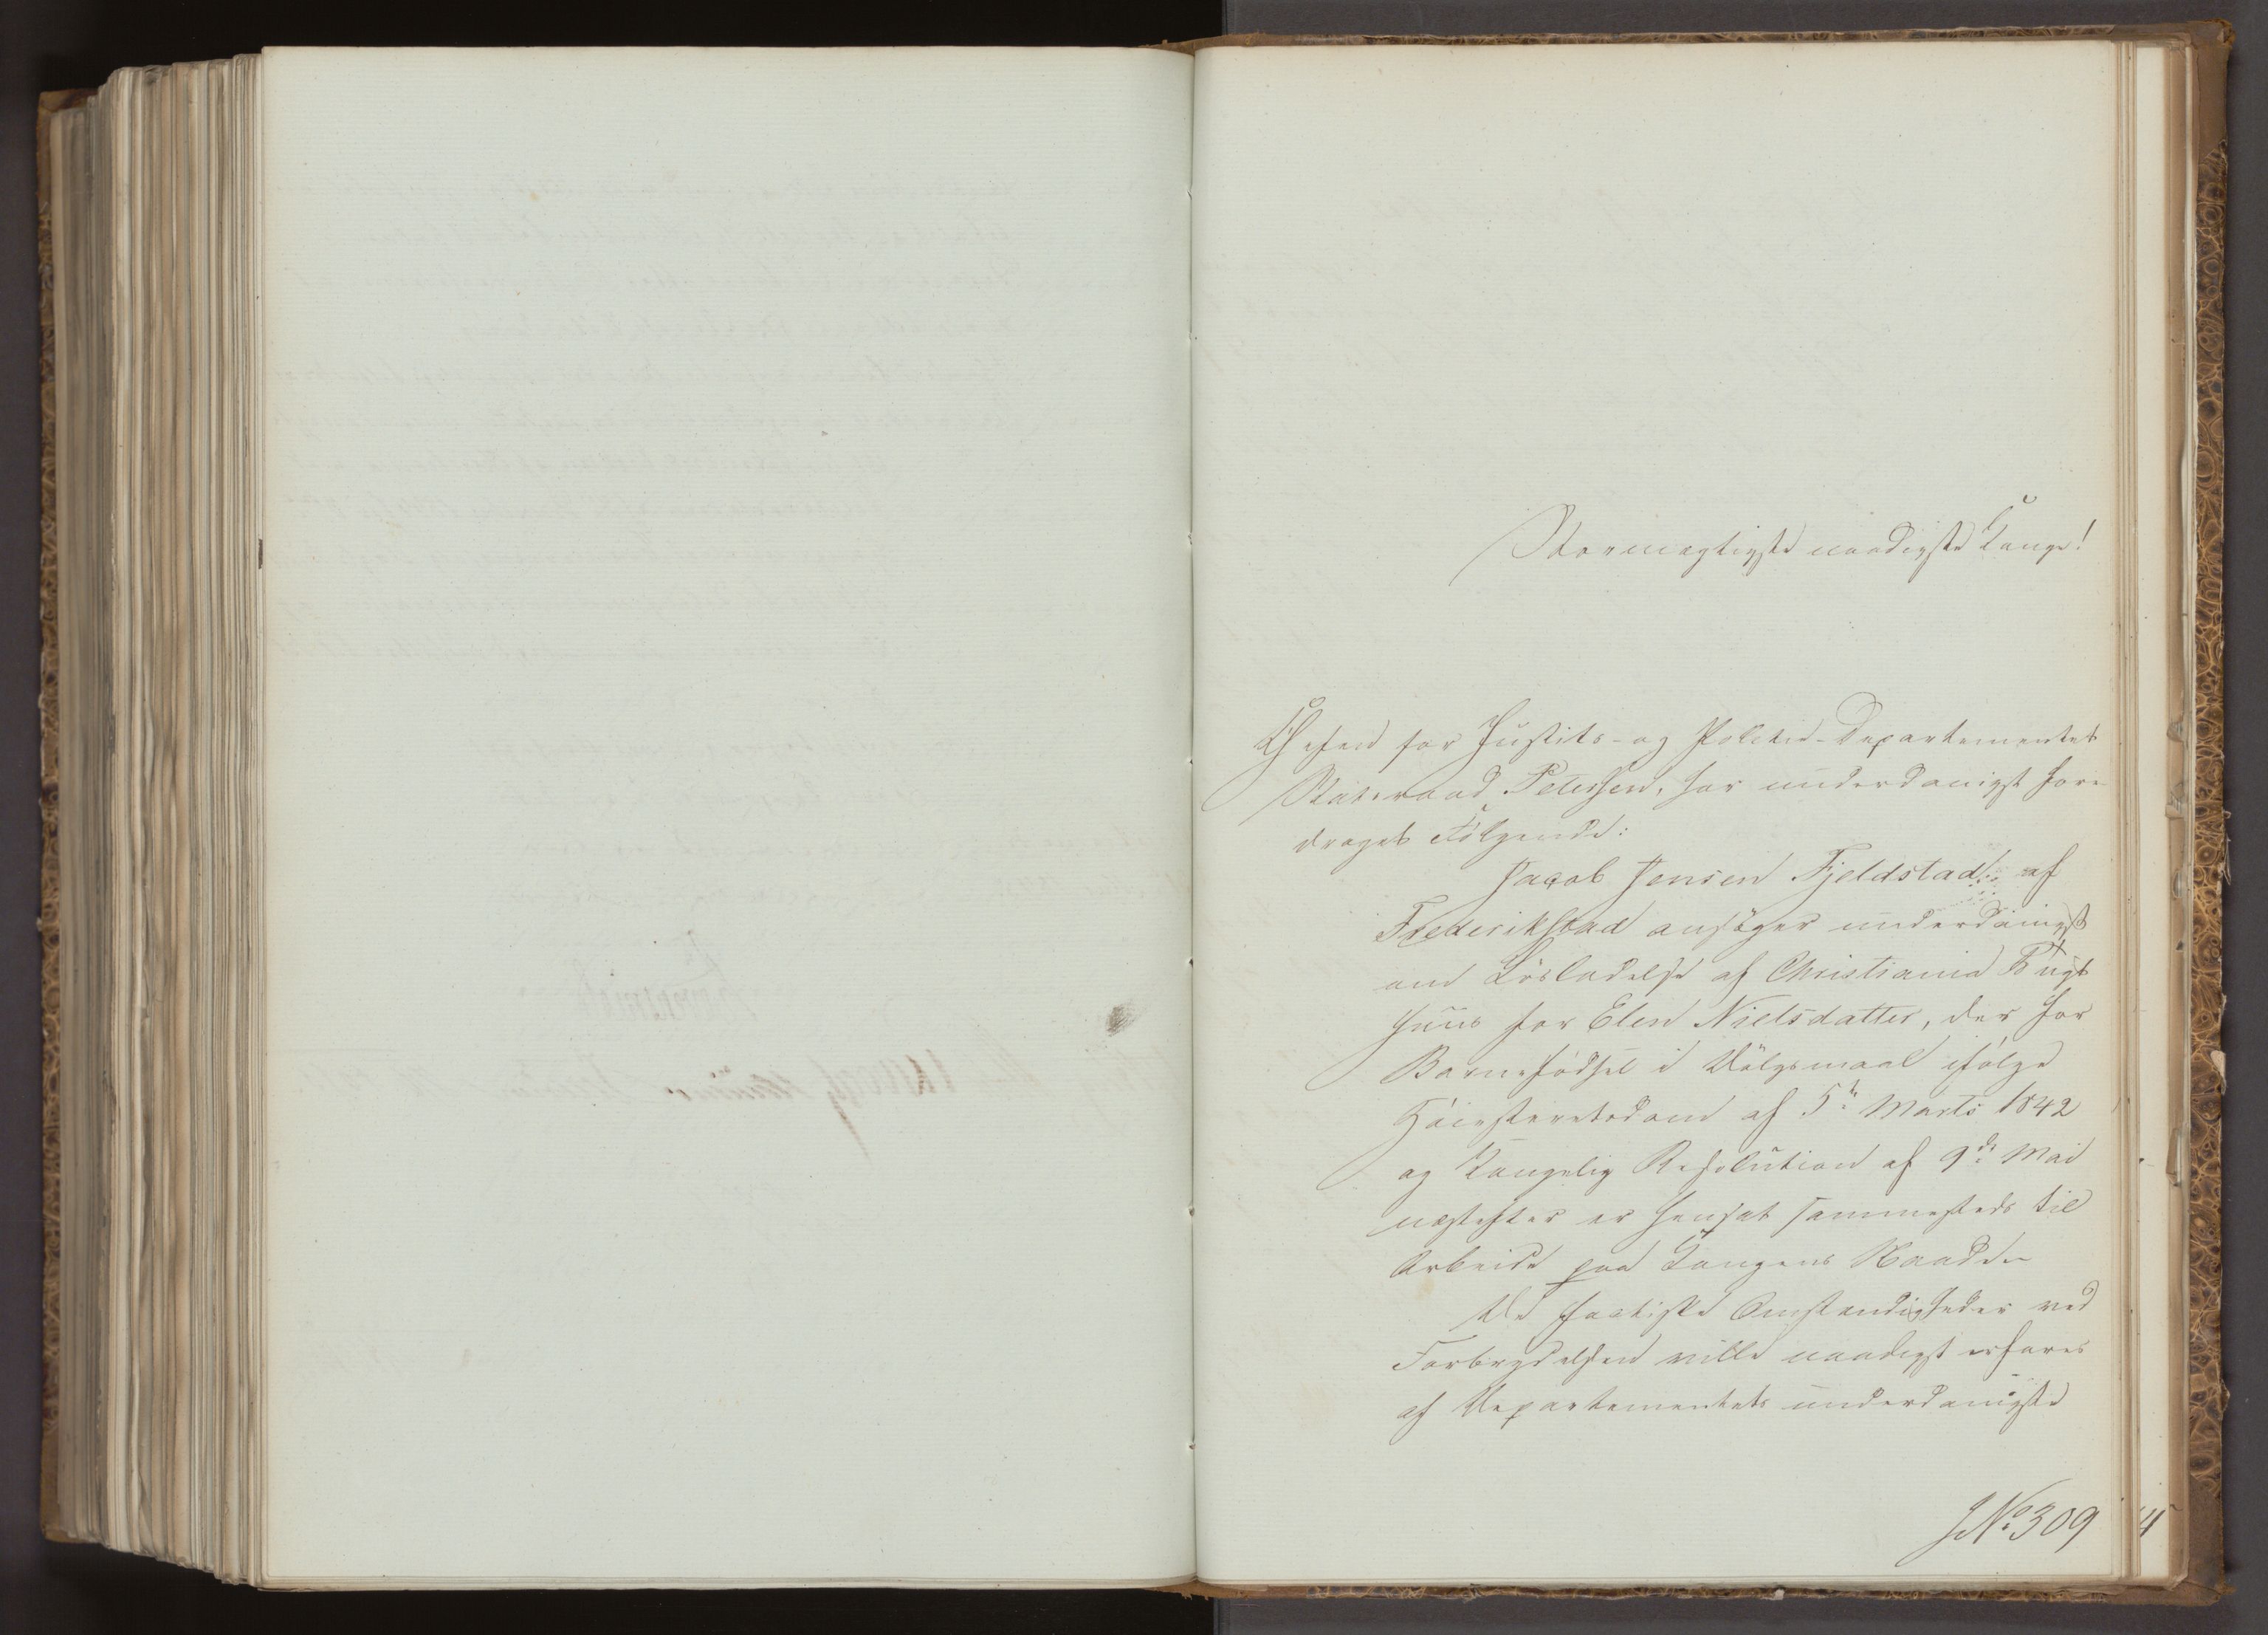 Stormægtigste naadigste Konge!
Chefen for Justits- og Politie-Departementet
Statsraad Petersen, har underdanigst fore-
draget Følgende:
Jacob Jensen Fjeldstad af
Frederikstad ansøger underdanigst
om Løsladelse af Christiania Tugt
huus for Elen Nielsdatter, der for
Barnefødsel i Dølgsmaal ifølge
Høiesteretsdom af 5te Marts 1842
og Kongelig Resolution af 9de Mai
næstefter er hensat sammesteds til
Arbeide paa Kongens Naade.
De factiske Omstændigheder ved
Forbrydelsen ville naadigst erfares
af Departementets underdanigste
JNo 309